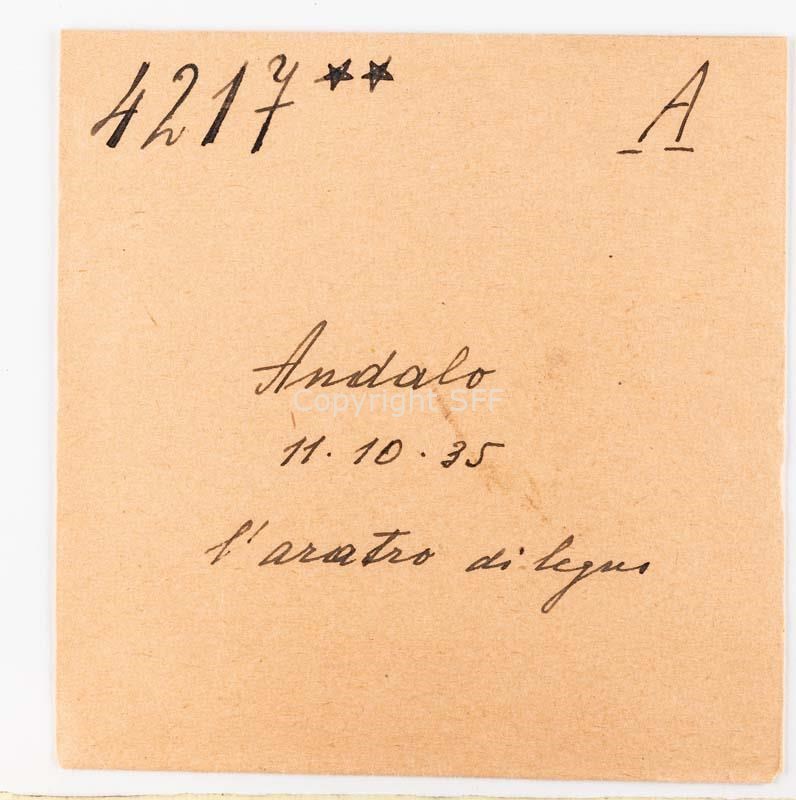 4217** A
Andalo
Copyright SFF
11.10.35
l'aratro di legno